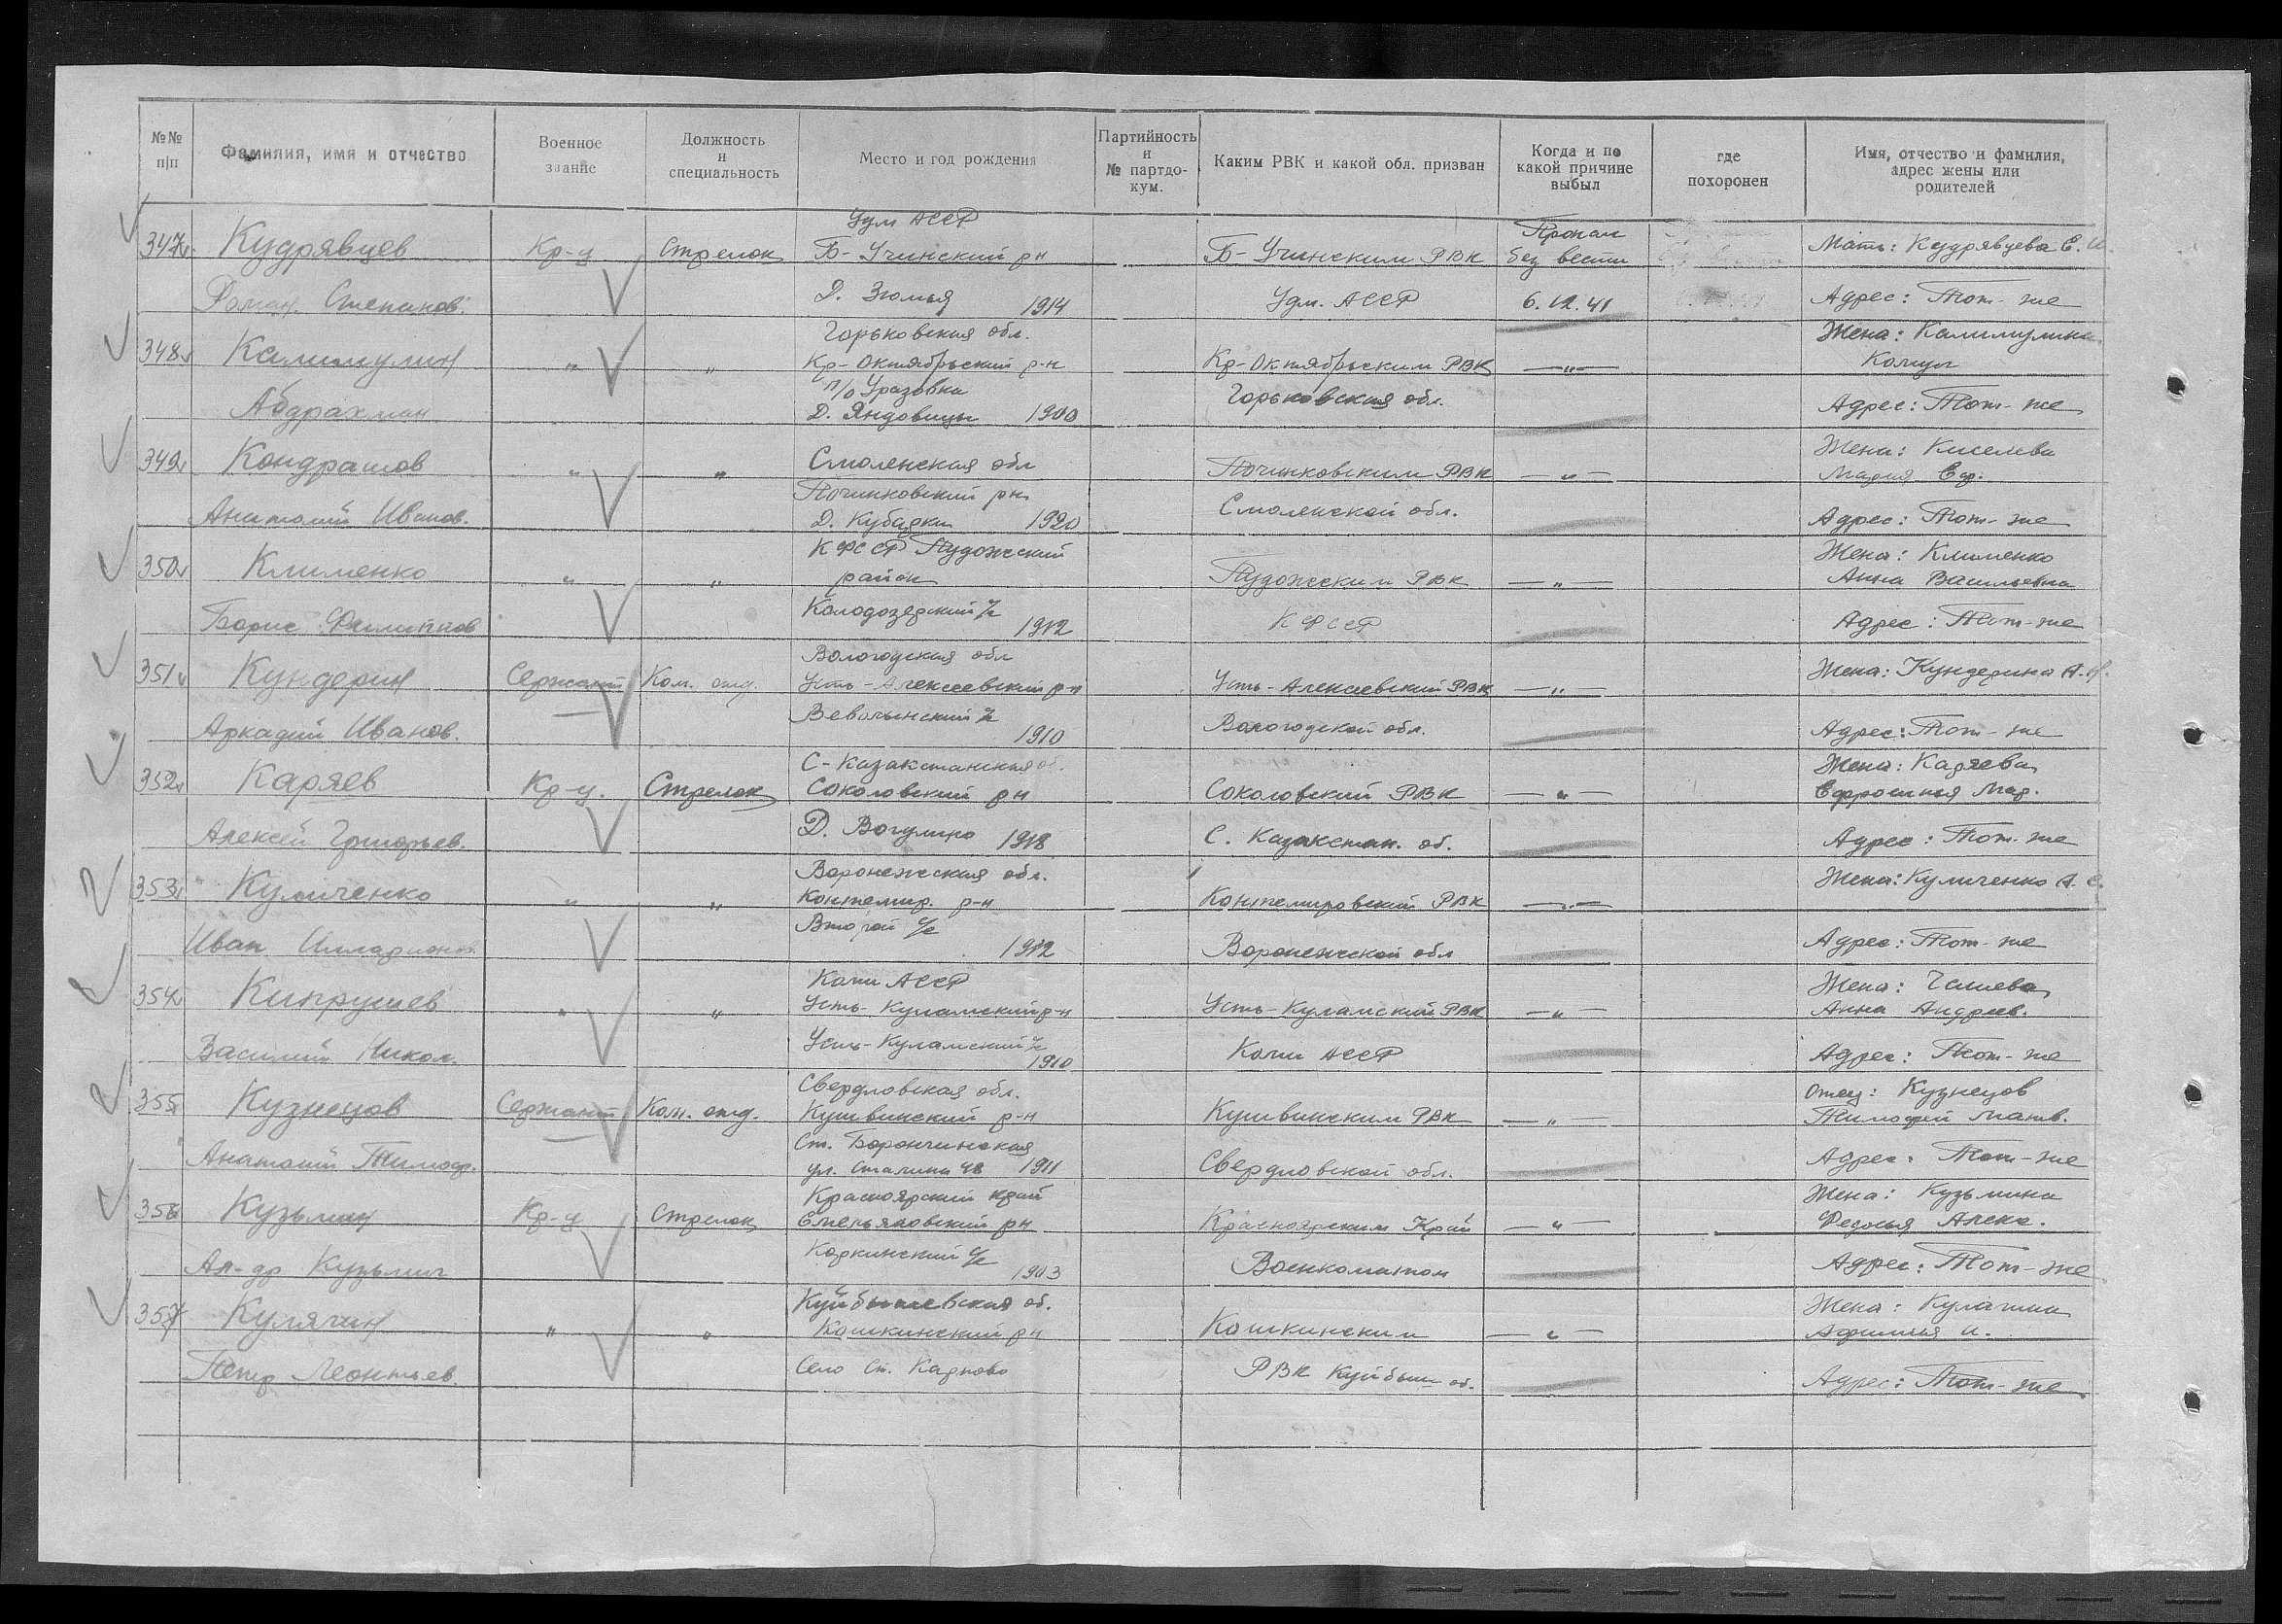 №№ п/п
Фамилия, имя и отчество
Военное звание
Должность и специальность
Место и год рождения
Партийность и № партдокум.
Каким РВК и какой обл. призван
Когда и по какой причине выбыл
где похоронен
Имя, отчество и фамилия, адрес жены или родителей
Удм АССР
347 Кудрявцев Кр-ц Стрелок Б-Учинский рн Б-Учинским РВК Пропал без вести Мать: Кудрявцева Е. И.
Роман. Степанов. Д. Зюмья 1914 Удм. АССР 6.12.41 Адрес: Тот-же
Горьковская обл. Жена: Калимулина
348 Калимулин " " Кр-Октябрьский р-н Кр-Октябрьским РВК —"—
п/о Уразовка
Абдрахман Д. Яндовищи 1900 Горьковская обл. Адрес: Тот-же
Жена: Киселева
349 Кондрашов " " Смоленская обл Починковским РВК —"— Мария Еф.
Починковский рн
Анатолий Иванов. Д. 1920 Смоленской обл. Адрес: Тот-же
КФССР Пудожский Жена: Клименко
350 Клименко " " район Пудожским РВК —"— Анна Васильевна
Борис Филиппов Колодозерский с/с 1912 КФССР Адрес: Тот-же
Вологодская обл
351 Кундерин Сержант Ком. отд. Усть-Алексеевский р-н Усть-Алексеевский РВК —"— Жена: Кундерина А.
Аркадий Иванов. с/с 1910 Вологодской обл. Адрес: Тот-же
С-Казакстанская об. Жена: Каряева
352 Каряев Кр-ц. Стрелок Соколовский рн Соколовский РВК —"— Ефросинья Мар.
Алексей Григорьев. Д. Вогулино 1918 С. Казакстан. об. Адрес: Тот-же
Воронежская обл.
353 Куличенко " " Контемир. р-н Контемировский РВК —"— Жена: Куличенко А. С.
Иван Илларионов. Второй с/с 1912 Воронежской обл Адрес: Тот-же
Коми АССР Жена:
354 Кипрушев " " Усть-Куламский р-н Усть-Куламский РВК —"— Анна Андреев.
Василий Никол. Усть-Куламский с/с 1910 Коми АССР Адрес: Тот-же
Свердловская обл. Отец: Кузнецов
355 Кузнецов Сержант Ком. отд. Кушвинский р-н Кушвинским РВК —"— Тимофей Матв.
Ст. Баранчинская
Анатолий Тимоф. ул. Сталина 48 1911 Свердловской обл. Адрес: Тот-же
Красноярский край Жена: Кузьмина
356 Кузьмин Кр-ц Стрелок Емельяновский рн Красноярским Край —"— Федосья Алекс.
Ал-др Кузьмич с/с 1903 Военкоматом Адрес: Тот-же
Куйбышевская об. Жена:
357 Кулягин " " Кошкинский рн Кошкинским —"— И.
Петр Леонтьев. Село Ст. РВК Куйбыш об. Адрес: Тот-же